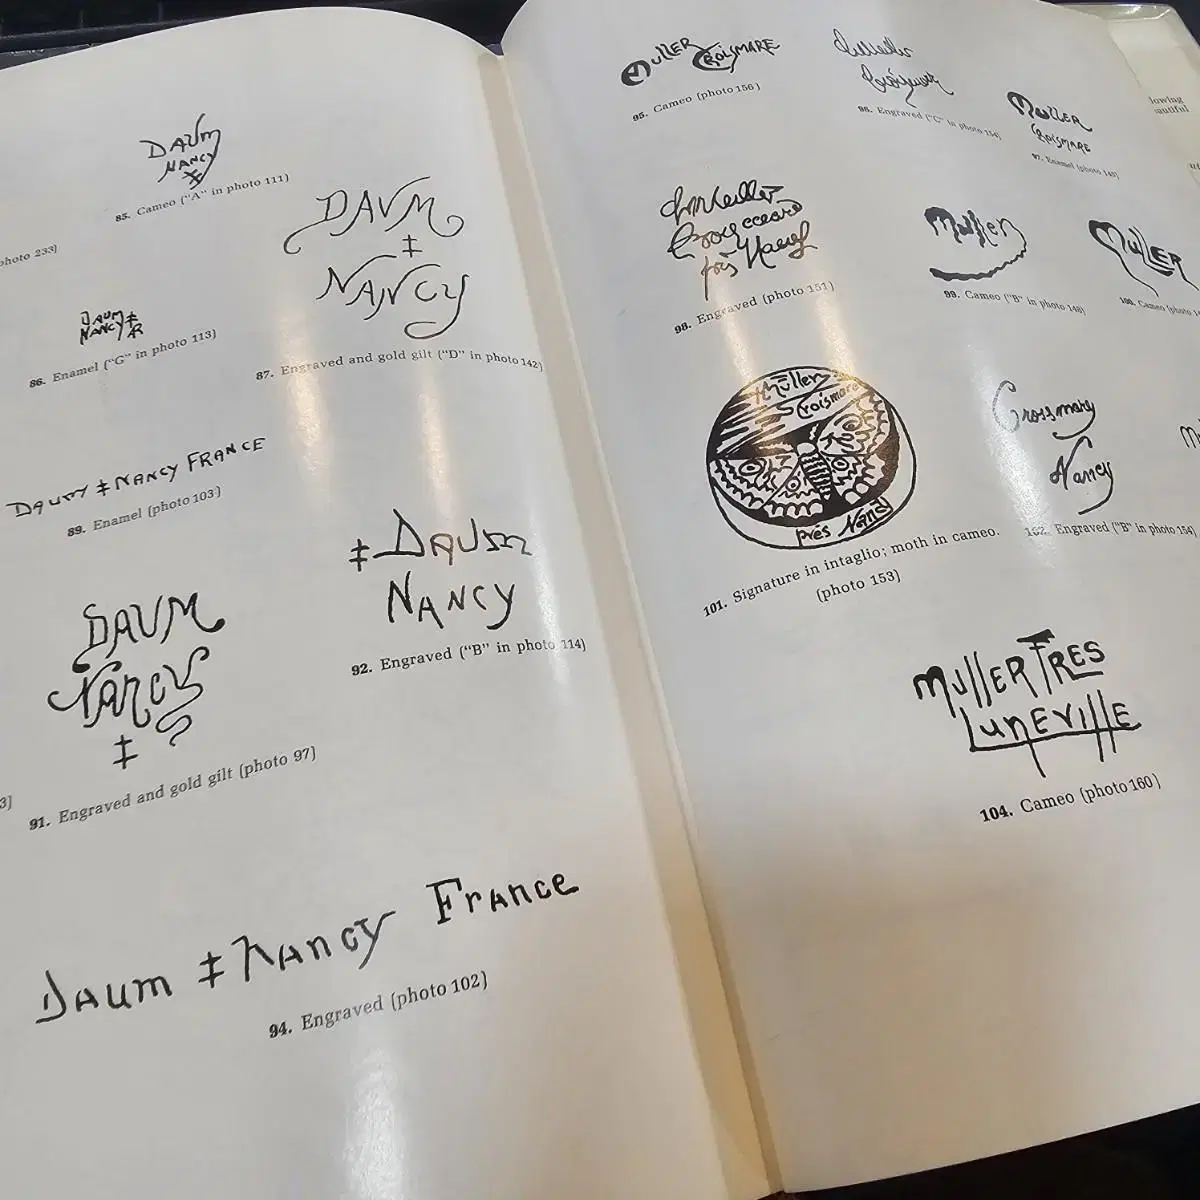 DAUM
NANCY
‡
85. Cameo ("A" in photo 111)
photo 233)
DAVM
‡
NANCY
87. Engraved and gold gilt ("D" in photo 142)
DAUM
NANCY ‡
86. Enamel ("G" in photo 113)
DAUM ‡ NANCY FRANCE
89. Enamel (photo 103)
‡ DAUM
NANCY
92. Engraved ("B" in photo 114)
DAUM
NANCY
‡
91. Engraved and gold gilt (photo 97)
3)
DAUM ‡ NANCY FRANCE
94. Engraved (photo 102)
MULLER CROISMARE
95. Cameo (photo 156)
Croismare
96. Engraved ("C" in photo 154)
MULLER
CROISMARE
97. Enamel (photo
lowing
eautiful
près Nancy
98. Engraved (photo 151)
Muller
99. Cameo ("B" in photo
MULLER
100. Cameo (photo
Müller
Croismare
près Nancy
101. Signature in intaglio; moth in cameo.
(photo 153)
Nancy
102. Engraved ("B" in photo 154)
MULLER FRES
LUNEVILLE
104. Cameo (photo 160)